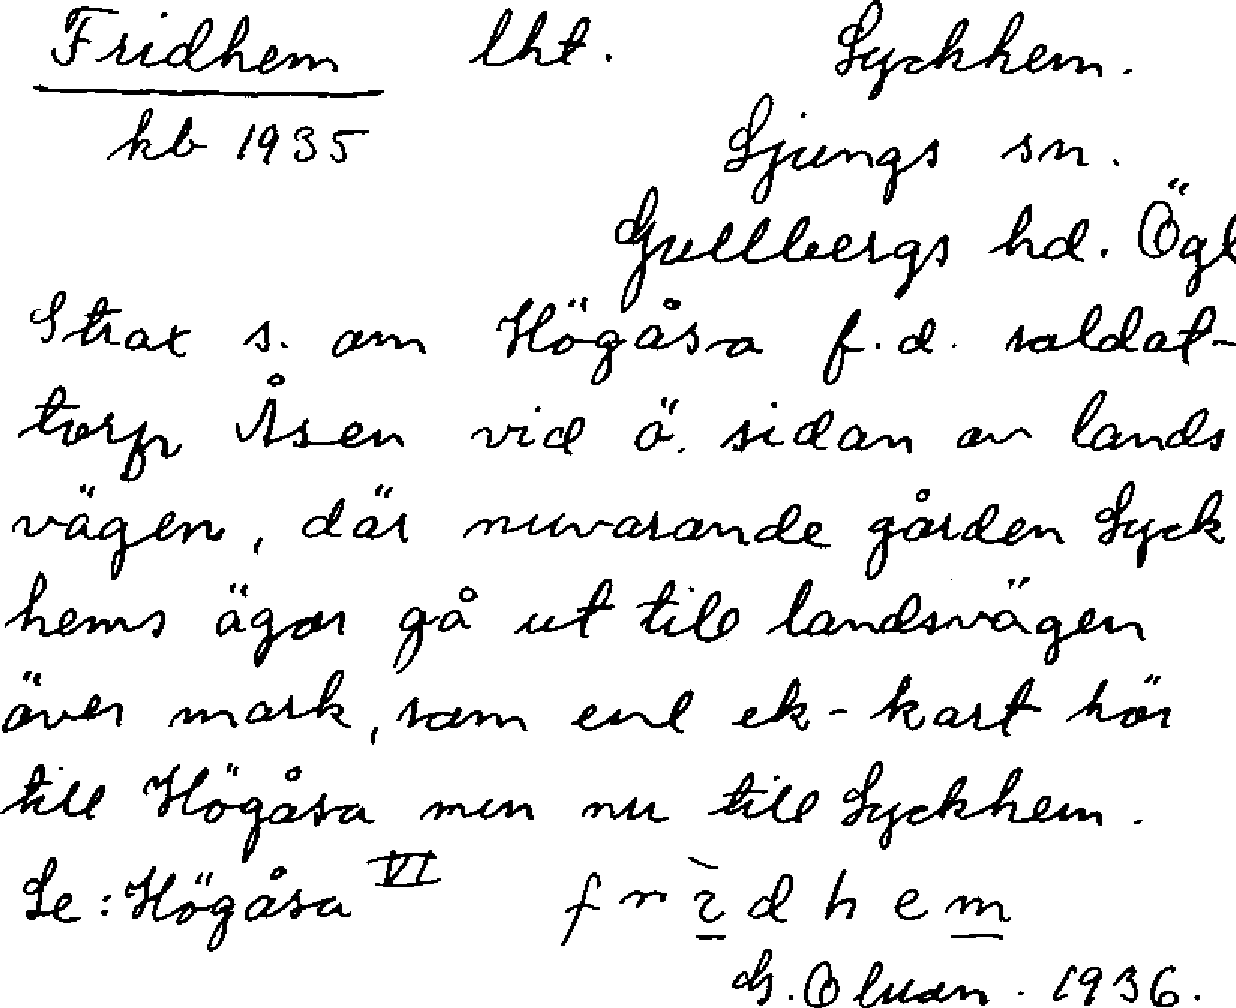 Fridhem lht. Lyckhem.
kb 1935 Ljungs sn.
Gullbergs hd. Ögl
Strax s. om Högåsa f.d. soldat-
torp Åsen vid ö. sidan av lands
vägen, där nuvarande gården Lyck
hems ägor gå ut till landsvägen
över mark, som enl ek-kart hör
till Högåsa men nu till Lyckhem.
Se: Högåsa VI fridhem
G. Olson. 1936.